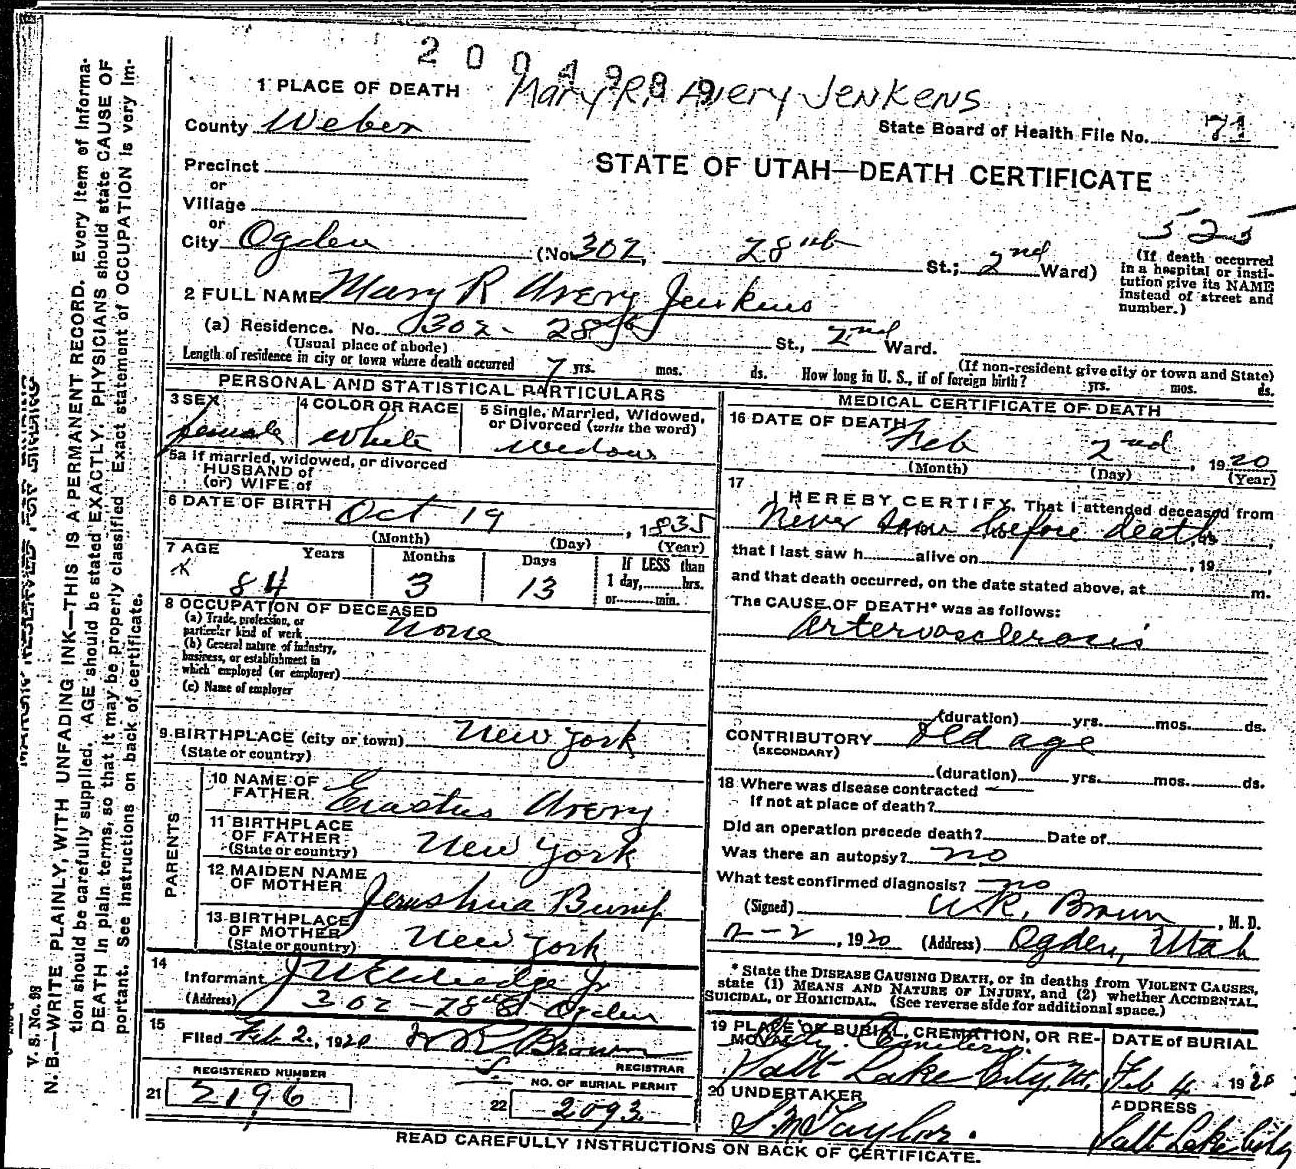 2004989
Mary R. Avery Jenkens
1 PLACE OF DEATH
County Weber
State Board of Health File No. 71
Precinct
or
Village
or
STATE OF UTAH—DEATH CERTIFICATE
525
City Ogden (No. 302, 28th St.; 2nd Ward)
(If death occurred in a hospital or institution give its NAME instead of street and number.)
2 FULL NAME Mary R Avery Jenkins
(a) Residence. No. 302 - 28th St., 2nd Ward.
(Usual place of abode)
(If non-resident give city or town and State)
Length of residence in city or town where death occurred 7 yrs. mos. ds. How long in U. S., if of foreign birth? yrs. mos. ds.
PERSONAL AND STATISTICAL PARTICULARS
3 SEX
female
4 COLOR OR RACE
White
5 Single, Married, Widowed, or Divorced (write the word)
Widow
5a If married, widowed, or divorced
HUSBAND of
(or) WIFE of
6 DATE OF BIRTH Oct 19, 1835
(Month) (Day) (Year)
7 AGE
Years Months Days
If LESS than
1 day, hrs.
or min.
84 3 13
8 OCCUPATION OF DECEASED
(a) Trade, profession, or
particular kind of work None
(b) General nature of industry,
business, or establishment in
which employed (or employer)
(c) Name of employer
9 BIRTHPLACE (city or town) New York
(State or country)
PARENTS
10 NAME OF FATHER Erastus Avery
11 BIRTHPLACE OF FATHER New York
(State or country)
12 MAIDEN NAME OF MOTHER Jerushua
13 BIRTHPLACE OF MOTHER New York
(State or country)
14
Informant
(Address) 302 - 28th St Ogden
15
Filed Feb 2, 1920 W R Brown
REGISTRAR
REGISTERED NUMBER
21 2196
NO. OF BURIAL PERMIT
22 2093
MEDICAL CERTIFICATE OF DEATH
16 DATE OF DEATH
Feb 2nd, 1920
(Month) (Day) (Year)
17
I HEREBY CERTIFY, That I attended deceased from
Never saw before death
that I last saw h alive on , 19
and that death occurred, on the date stated above, at m.
The CAUSE OF DEATH* was as follows:
Arterosclerosis
(duration) yrs. mos. ds.
CONTRIBUTORY Old age
(SECONDARY)
(duration) yrs. mos. ds.
18 Where was disease contracted
If not at place of death?
Did an operation precede death? Date of
Was there an autopsy? no
What test confirmed diagnosis? no
(Signed) W.R. Brown, M. D.
2-2, 1920 (Address) Ogden, Utah
* State the DISEASE CAUSING DEATH, or in deaths from VIOLENT CAUSES,
state (1) MEANS AND NATURE OF INJURY, and (2) whether ACCIDENTAL,
SUICIDAL, or HOMICIDAL. (See reverse side for additional space.)
19 PLACE OF BURIAL, CREMATION, OR REMOVAL
City Cemetery.
Salt Lake City Ut.
DATE of BURIAL
Feb 4 1920
20 UNDERTAKER
S M Taylor.
ADDRESS
Salt Lake City
READ CAREFULLY INSTRUCTIONS ON BACK OF CERTIFICATE.
MARGIN RESERVED FOR BINDING
V. S. No. 98
N. B.—WRITE PLAINLY, WITH UNFADING INK—THIS IS A PERMANENT RECORD. Every Item of Informa-
tion should be carefully supplied. AGE should be stated EXACTLY. PHYSICIANS should state CAUSE OF
DEATH in plain terms, so that it may be properly classified. Exact statement of OCCUPATION is very im-
portant. See instructions on back of certificate.